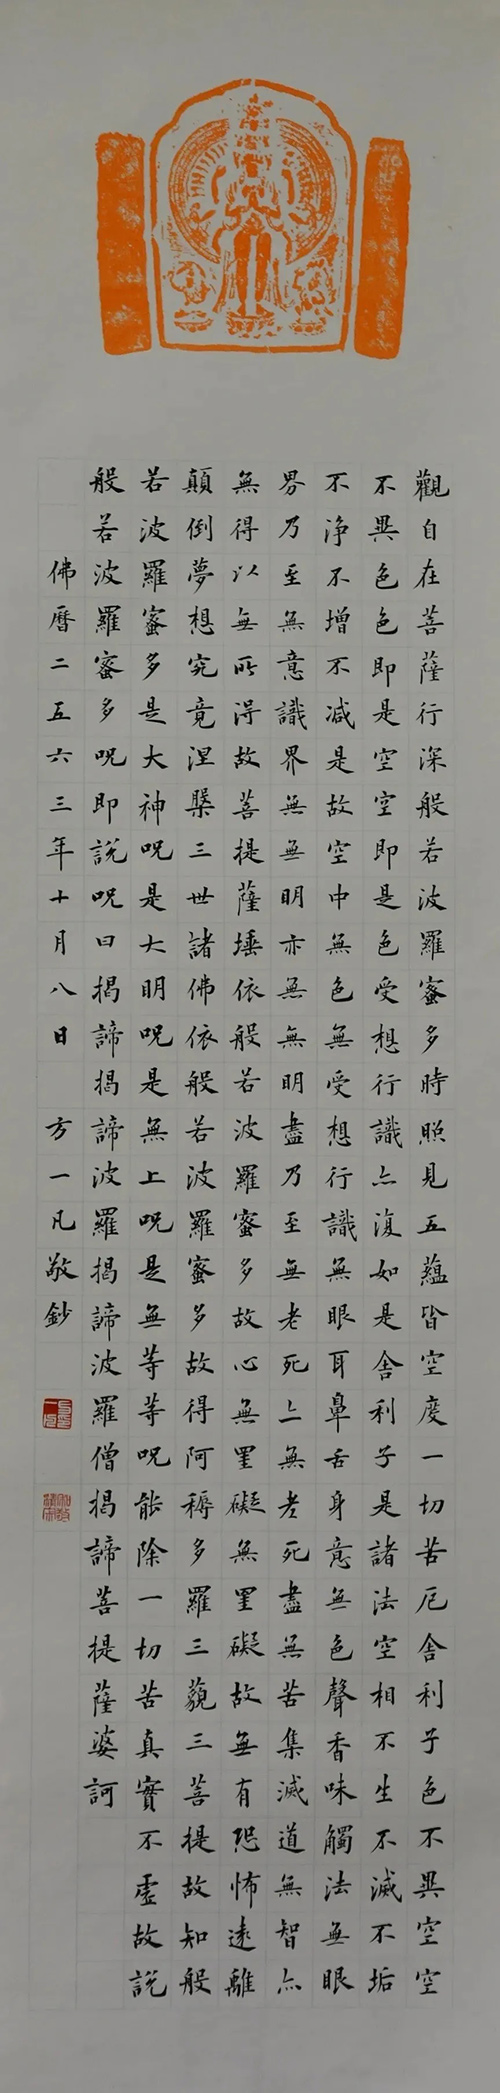 觀自在菩薩行深般若波羅蜜多時照見五蘊皆空度一切苦厄舍利子色不異空空
不異色色即是空空即是色受想行識亦復如是舍利子是諸法空相不生不滅不垢
不淨不增不減是故空中無色無受想行識無眼耳鼻舌身意無色聲香味觸法無眼
界乃至無意識界無無明亦無無明盡乃至無老死亦無老死盡無苦集滅道無智亦
無得以無所得故菩提薩埵依般若波羅蜜多故心無罣礙無罣礙故無有恐怖遠離
顛倒夢想究竟涅槃三世諸佛依般若波羅蜜多故得阿耨多羅三藐三菩提故知般
若波羅蜜多是大神呪是大明呪是無上呪是無等等呪能除一切苦真實不虛故說
般若波羅蜜多呪即說呪曰揭諦揭諦波羅揭諦波羅僧揭諦菩提薩婆訶
佛曆二五六三年十月八日 方一凡敬鈔